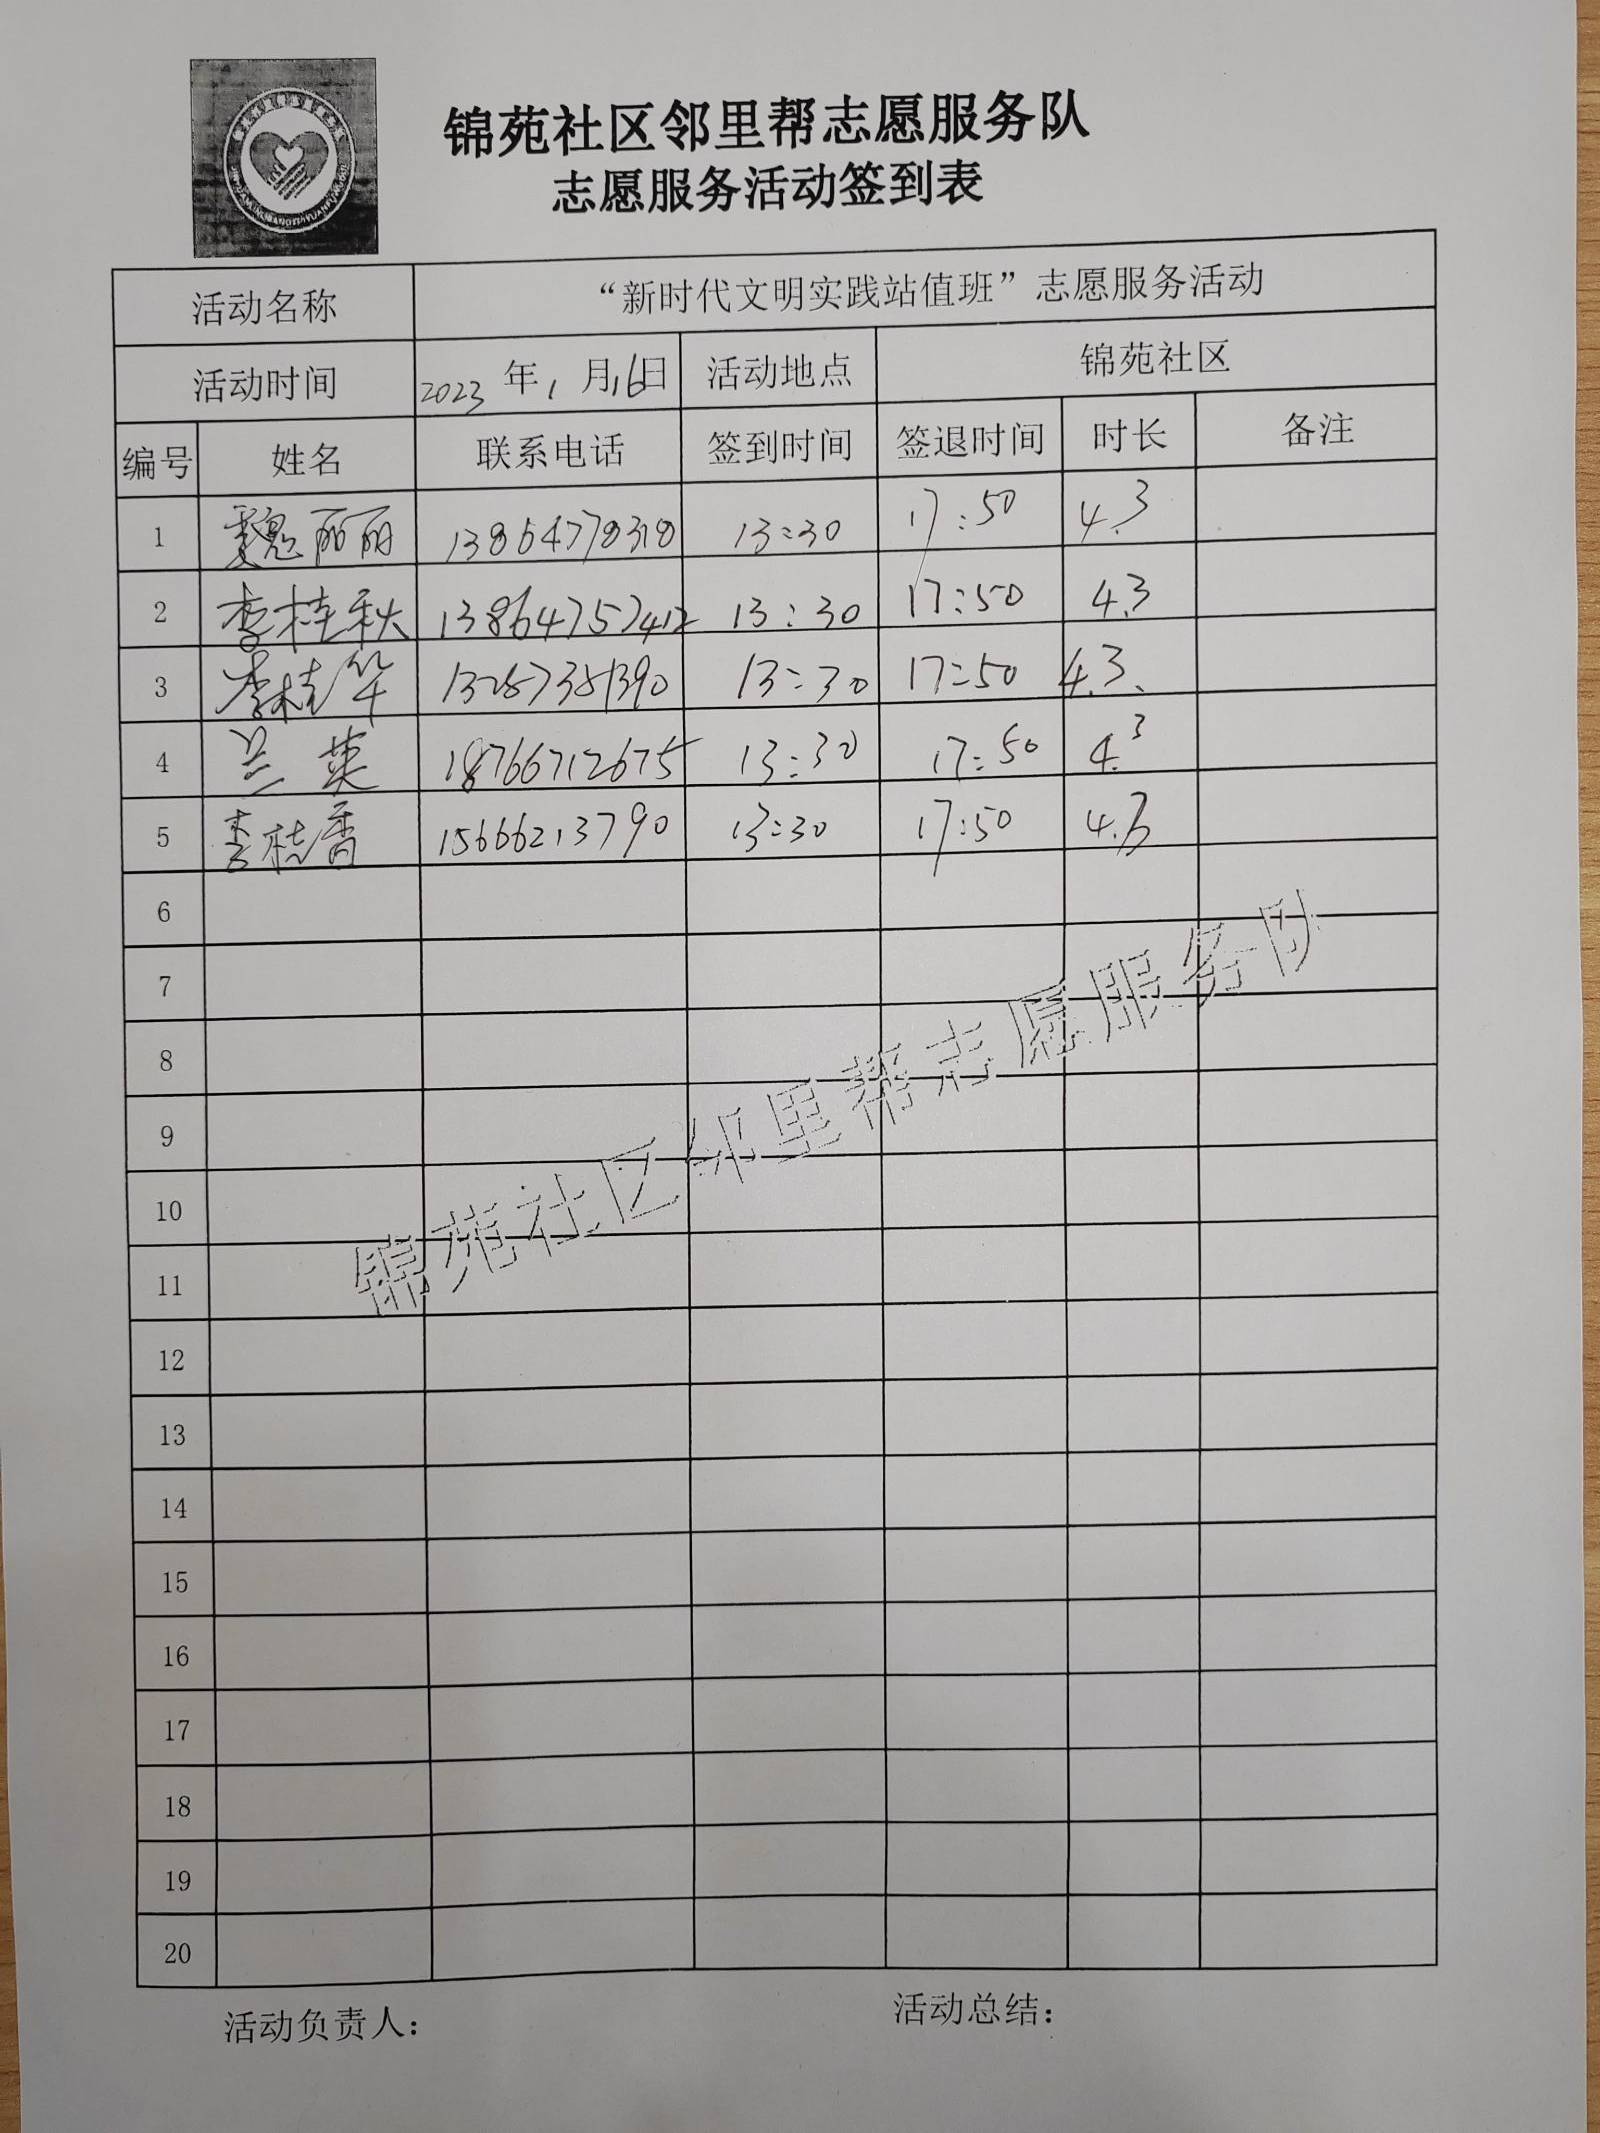 锦苑社区邻里帮志愿服务队
志愿服务活动签到表
活动名称 “新时代文明实践站值班”志愿服务活动
活动时间 2023年1月16日 活动地点 锦苑社区
编号 姓名 联系电话 签到时间 签退时间 时长 备注
1 魏丽丽 13864778318 13:30 17:50 4.3
2 李桂秋 13864757412 13:30 17:50 4.3
3 李桂华 13:30 17:50 4.3
4 兰英 18766712675 13:30 17:50 4.3
5 李桂香 15666213790 13:30 17:50 4.3
6
7
8
9
10
11
12
13
14
15
16
17
18
19
20
锦苑社区邻里帮志愿服务队
活动负责人： 活动总结：